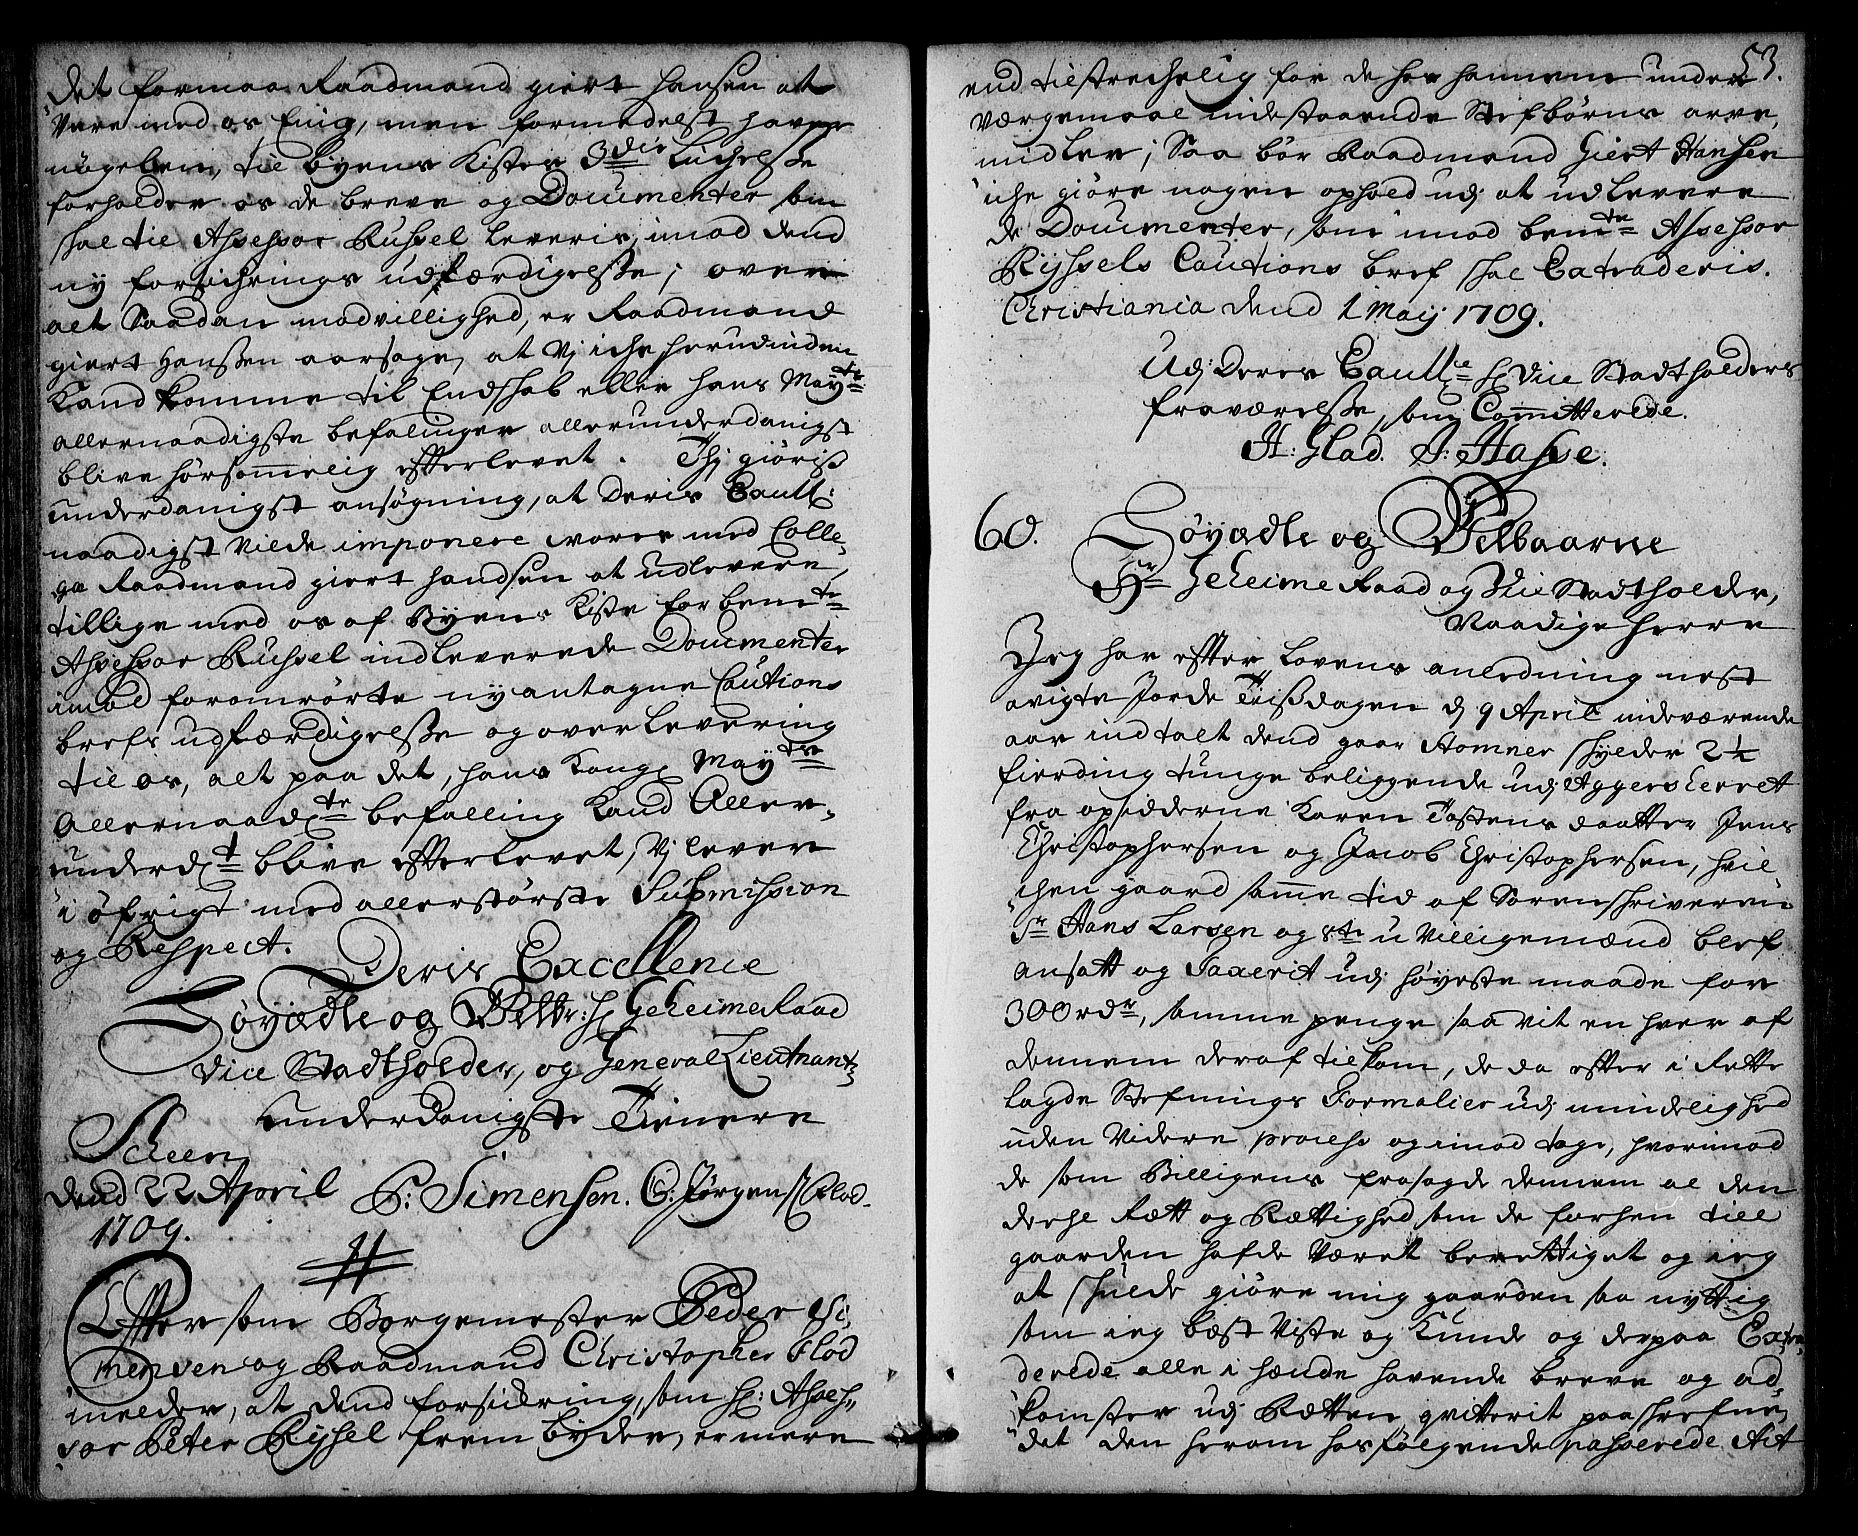 det formaar Raadmand giert Hansen at
være med os Enig, men formedelst hand
nøgelen, til byens Kistes 3die Luchelse
forholder os de breve og Documenter som
skal til Assessor Russel leveris, imod dend
ny forsichrings udfærdigelsse; over
alt Saadan modvillighed, er Raadmand
giert Hanssen aarsage, at Vj iche herudinden
Kand komme til Endskab eller hans Mayts
allernaadigste befalinger allerunderdanigst
blive hørsommelig efterlevet. Thj giøriss
underdanigst ansøgning, at Deris Excell:
naadigst Vilde imponere voris med Colle„
ga Raadmand giert handsen at udlevere,
tillige med os af Byens Kiste forbemte
Assessor Russel indleverede Documenter
imod foromrørte ny antagne Cautions
brefs udfærdigelsse og overlevering
til os, alt paa det, hans Kongl Mayts
Allernaadte befalling Kand Aller„
underdt blive efterlevet, Vj lever
i øfrigt med allerstørste Submission
og Respect.
Deris Excellence
Høyædle og Velb: Hr GeheimeRaad
Vice Stadtholder, og General Lieutnant
underdanigste Tienere
Scheen
dend 22 April P: Simensen. C: Jørgens: Blod.
1709.
Efftersom Borgemester Peder Si„
mensen og Raadmand Christopher Blod
melder, at dend forsickring, som H: Asses„
sor Peter Ryssel frembyder, er mere
53.
end tilstrechelig for de hos hannem under
Værgemaal indestaaende Stefbørns arve„
midler; Saa bør Raadmand Giert Hansen
iche giøre nogen ophold udj at udlevere
de Documenter, som imod bemte Assessor
Ryssels Cautions bref skal Extraderis.
Christiania dend 1 Maij 1709.
Udj Deres Excellce H Vice Stadtholders
fraværelsse, som Committerede.
H: Glad. A: Hasse.
60. Høyædle og Velbaarne
Hr Geheime Raad og Vice Stadtholder,
Naadige Herre
Jeg har effter Lovens anledning nest
avigte Jorde Tiissdagen d 9 April indeværende
aar indtalt dend gaar Stomner skylder 2½
fierding tunge beliggende udj Aggers Herret
fra opsidderne Karen Tostens daatter Jens
Christophersen og Jacob Christophersen, hvil„
chen gaard samme tid af Sorenskriveren
Sr Hans Larsen og 8te u Villigemænd blef
ansatt og Taxerit udj høyeste maade for
300 rdr, samme penge saa vit en hver af
dennem deraf tilkom, de da effter i Rette
lagde Stefnings Formalier udj mindelighed
uden Videre process og imod toge, hvorimod
de som Billigens frasagde dennem al den
derhe Rætt og Rættighed som de forhen till
gaarden hafde Været berettiget og ieg
at skulde giøre mig gaarden saa nyttig
som ieg bæst Viste og Kunde og derpaa Extra„
derede alle i hænde havende breve og ad„
komster udj Rætten qvitterit paaskrefne,
det den herom hosfølgende passerede Act